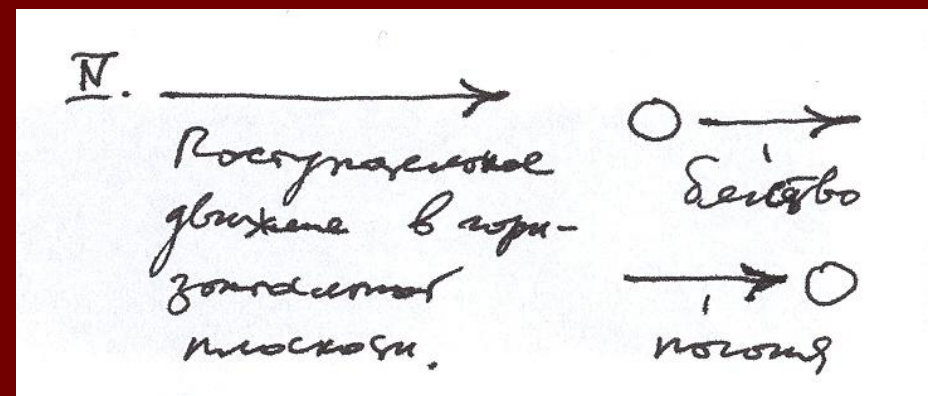 IV.
Поступательное
движение в гори-
зонтальной
плоскости.
бегство
погоня